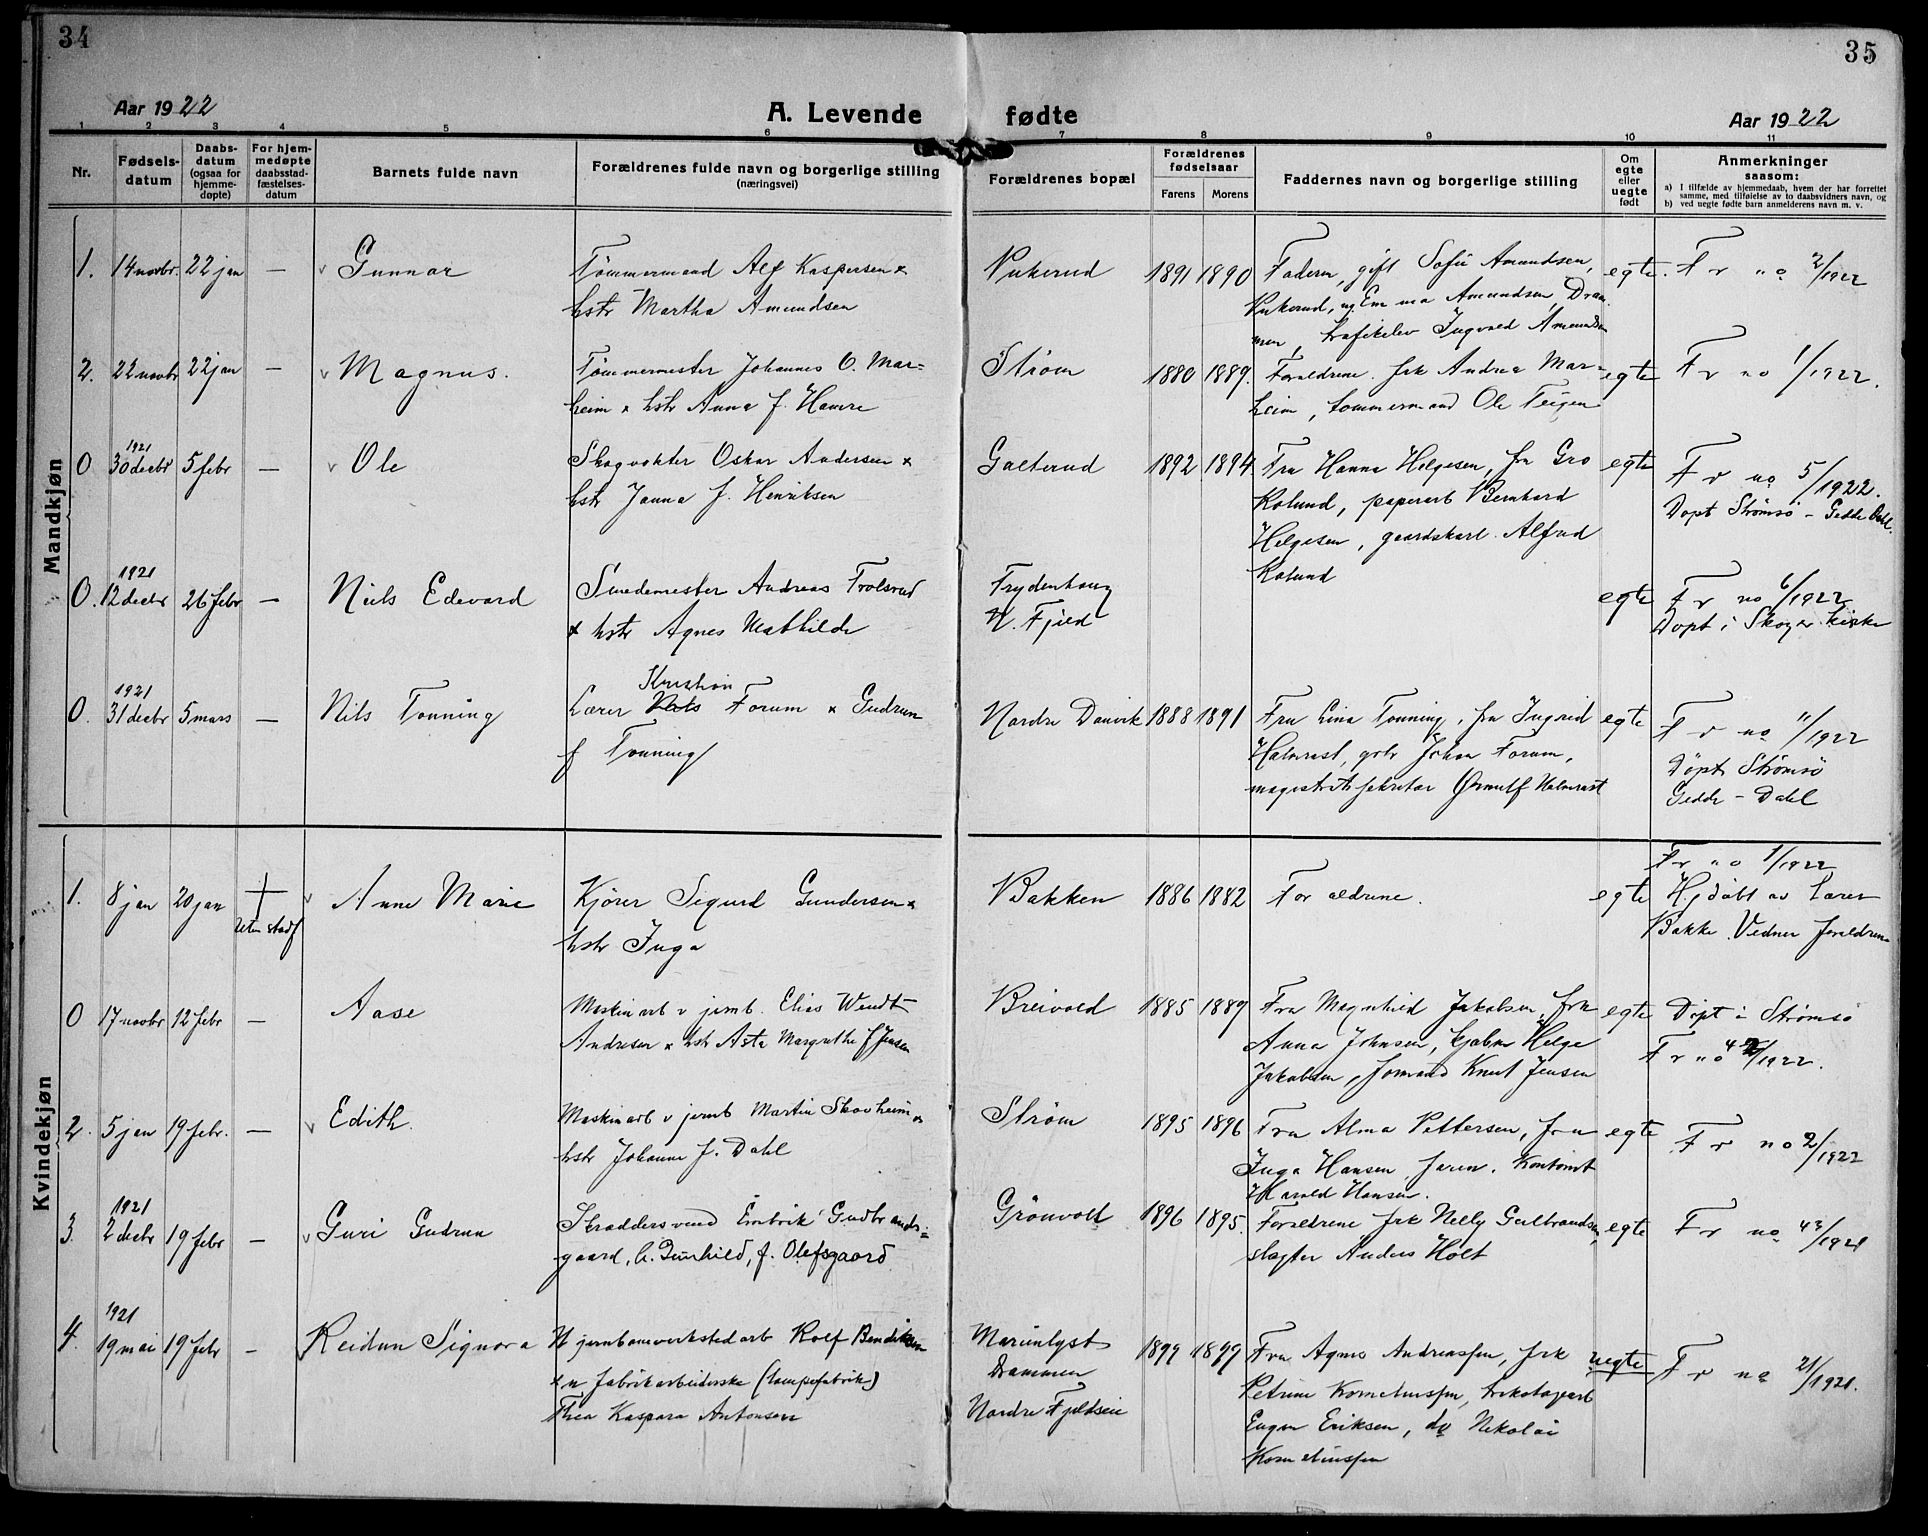 34
35
Aar 1922
A. Levende fødte
Aar 1922
1 2 3 4 5 6 7 8 9 10 11
Nr.
Fødsels-
datum
Daabs-
datum
(ogsaa for
hjemme-
døpte)
For hjem-
medøpte
daabsstad-
fæstelses-
datum
Barnets fulde navn
Forældrenes fulde navn og borgerlige stilling
(næringsvei)
Forældrenes bopæl
Forældrenes
fødselsaar
Farens Morens
Faddernes navn og borgerlige stilling
Om
egte
eller
uegte
født
Anmerkninger
saasom:
a) I tilfælde av hjemmedaab, hvem der har forrettet
samme, med tilføielse av to daabsvidners navn, og
b) ved uegte fødte barn anmelderens navn m. v.
Mandkjøn
1. 14 novbr. 22 jan — Gunnar
Tømmermand Alf Kaspersen x
hstr Martha Amundsen
Pukerud 1891 1890
Faderen, gift Sofie Amundsen,
Pukerud, ug Emma Amundsen, Dram-
men, trafikelev Ingvald Amundsen
egte. F r no 2/1922
2. 22 novbr 22 jan — Magnus.
Tømmermester Johannes O. Mar=
heim x hstr Anna f. Hamre
Strøm 1880 1889.
Foreldrene. frk Andrea Mar=
heim, tommermand Ole Teigen
egte F r no 1/1922.
0 1921
30 decbr 5 febr — Ole
Skogvokter Oskar Andersen x
hstr Janna f. Henriksen
Galterud 1892 1894
Fru Hanna Helgesen, fru Gro
Rolund, paperarb Bernhard
Helgesen, gaardskarl Alfred
Rolund
egte F r no 5/1922.
Døpt Strømsø – Gedde Dahl.
0. 1921
12 decbr 26 febr — Niels Edevard
Smedemester Andreas Trolsrud
x hstr Agnes Mathilde
Frydenhaug
N. Fjeld
egte F r no 6/1922
Døpt i Skoger kirke
0. 1921
31 decbr 5 mars — Nils Tonning
Kristian
Lærer Nils Forum x Gudrun
f Tonning
Nordre Danvik 1888 1891
Fru Lina Tonning, fru Ingrid
Halmrast, grbr Johan Forum,
magistratssekretær Ørnulf Halmrast
egte F r no 11/1922
Døpt Strømsø
Gedde – Dahl
Kvindekjøn
1. 8 jan 20 jan †
uten stadf
Anne Marie
Kjører Sigurd Gundersen x
hstr Inga
Bakken 1886 1882
Foraldrene.
egte F r no 1/1922
Hjdøbt av Lærer
Bakke. Vidner foreldrene
0 17 novbr 12 febr — Aase
Maskinarb v jernb. Elias Wendt
Andresen x hstr Asta Margrethe f Jensen
Breivold 1885 1889
Fru Magnhild Jakobsen, frk
Anna Johnsen, Helge
Jakobsen, formand Knut Jensen
egte Døpt i Strømsø
F r no 42/1922.
2. 5 jan 19 febr. — Edith.
Maskinarb v jernb Martin Skovheim x
hstr Johanne f. Dahl
Strøm 1895 1896
Fru Alma Pettersen, fru
Inga Hansen faren. Kontorist
Harald Hansen.
egte F r no 2/1922
3. 1921
2 decbr 19 febr — Guri Gudrun
Skraddersvend Embrik Gudbrands=
gaard, h. Gunhild, f. Olefsgaard
Grönvold 1896 1895.
Foreldrene frk Nelly Gulbrandsen,
slagter Anders Holt
egte F r no 43/1921
4. 1921
19 mai 19 febr — Reidun Signora
N jernbaneverkstedarb Rolf Bendiksen
x n fabrikarbeiderske (lampefabrik)
Thea Kaspara Antonsen
Marienlyst
Drammen
Nordre Fjeldseie
1899 1899
Fru Agnes Andreassen, frk
Petrine Korneliussen, trikotagearb
Eugen Eriksen, do Nikolai
Korneliussen
uegte F r no 21/1921.